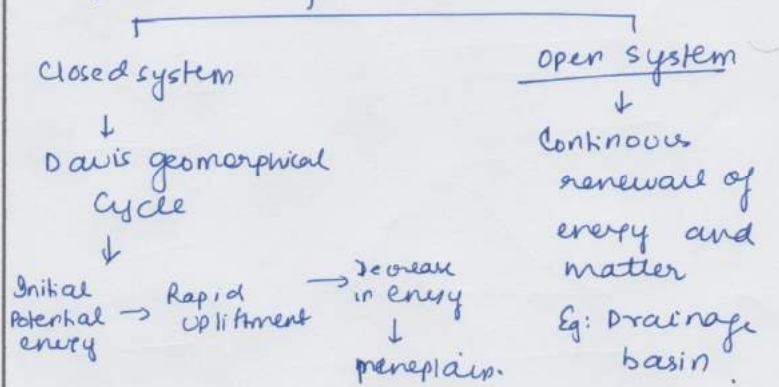 Closed system
↓
Davis geomorphical
Cycle
↓
Initial
Potential
enery
→ Rapid
upliftment
→ Decrease
in enery
↓
peneplain.
Open system
↓
Continuous
renewal of
enerpy and
matter
Eg: Drainage
basin.